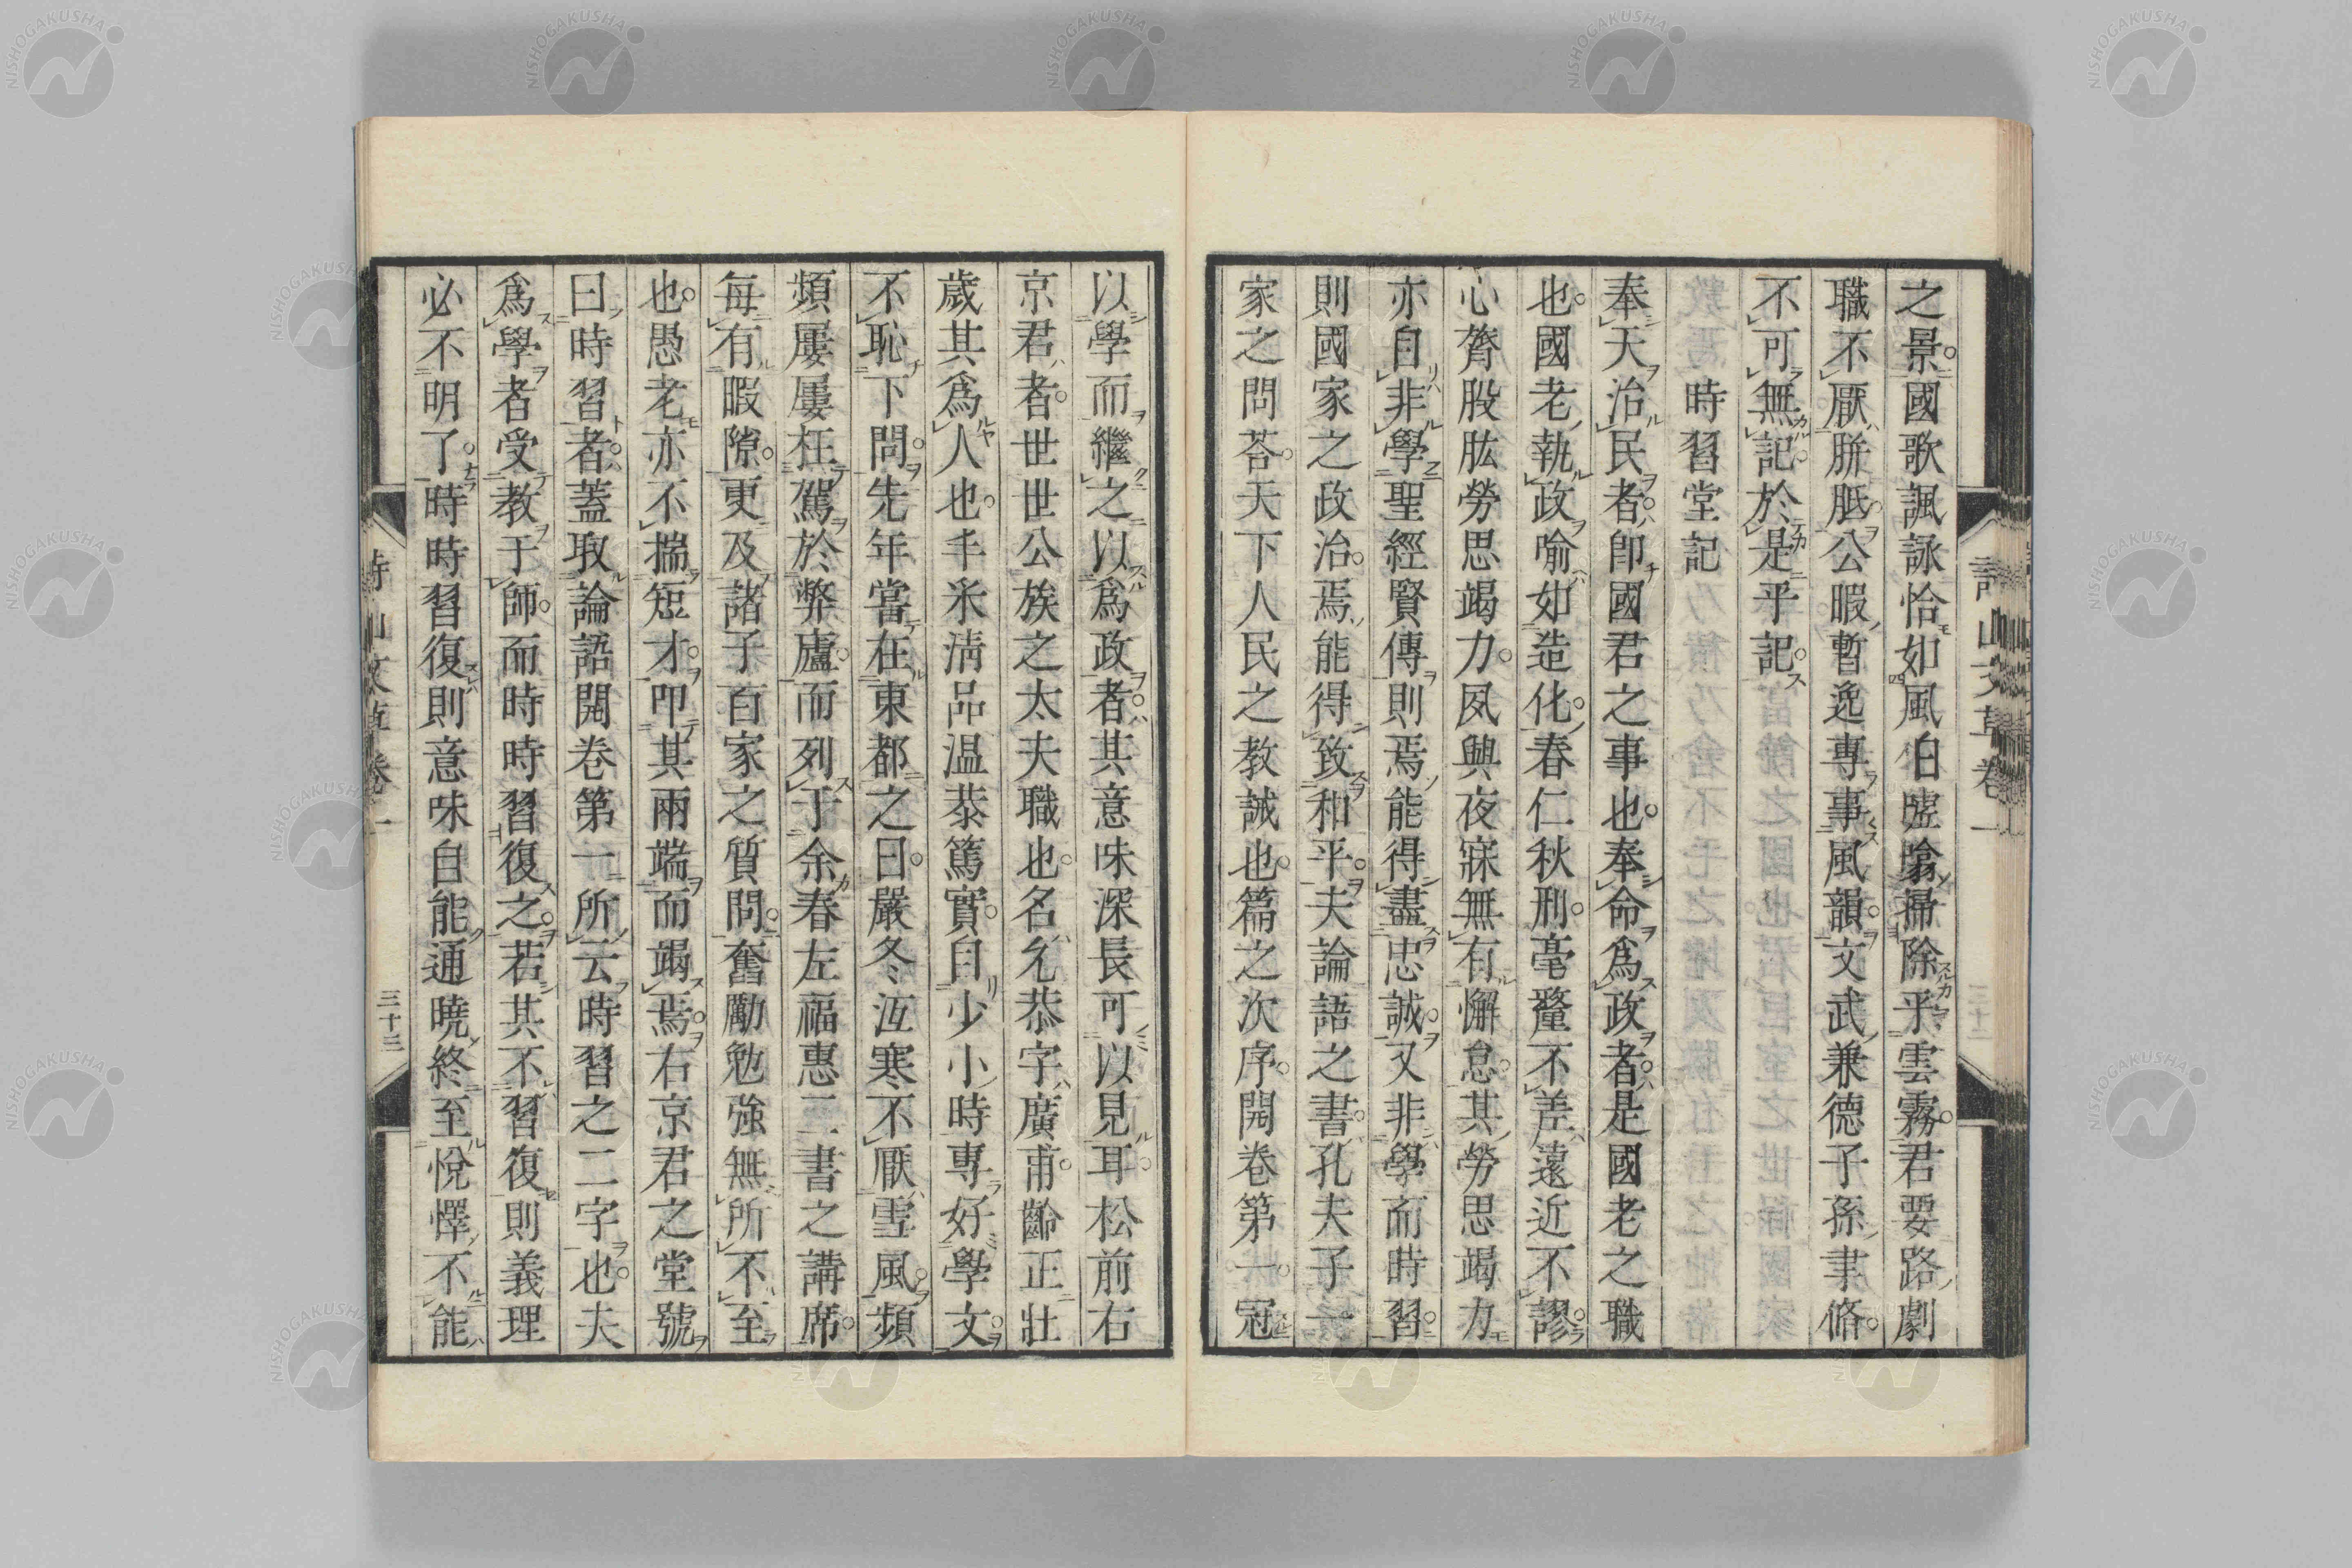 之景國歌諷詠恰如風伯噓翕掃除乎雲霧君要路劇
職不厭胼胝公暇暫逸專事風韻文武兼德子孫聿脩
不可無記於是乎記
時習堂記
奉天治民者卽國君之事也奉命爲政者是國老之職
也國老執政喻如造化春仁秋刑毫釐不差遠近不謬
心膂股肱勞思竭力夙興夜寐無有懈怠其勞思竭力
亦自非學聖經賢傳則焉能得盡忠誠又非學而時習
則國家之政治焉能得致和平夫論語之書孔夫子一
家之問荅天下人民之教誡也篇之次序開卷第一冠
以學而繼之以爲政者其意味深長可以見耳松前右
京君者世世公族之太夫職也名允恭字廣甫齡正壯
歲其爲人也丰采淸品温恭篤實自少小時專好學文
不恥下問先年當在東都之日嚴冬沍寒不厭雪風頻
頻屢屢枉駕於弊廬而列于余春左福惠二書之講席
每有暇隙更及諸子百家之質問奮勵勉強無所不至
也愚老亦不揣短才叩其兩端而竭焉右京君之堂號
曰時習者蓋取論語開卷第一所云時習之二字也夫
爲學者受教于師而時時習復之若其不習復則義理
必不明了時時習復則意味自能通曉終至悅懌不能
三十三